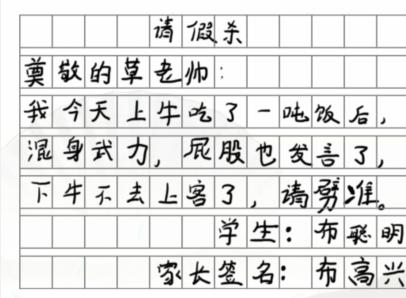 请假杀
奠敬的草老帅:
我今天上牛吃了一吨饭后,
混身武力,屁股也发言了,
下牛不去上客了,请劈准。
学生:布聪明
家长签名:布高兴